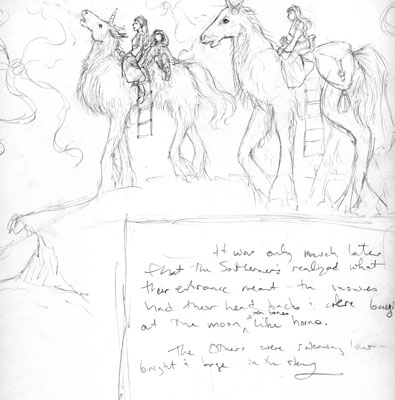 It was only much later
that the Southerners realized what
their entrance meant - the
had their head back & were
at the moon like horns.
The Others were low -
bright & large in the sky